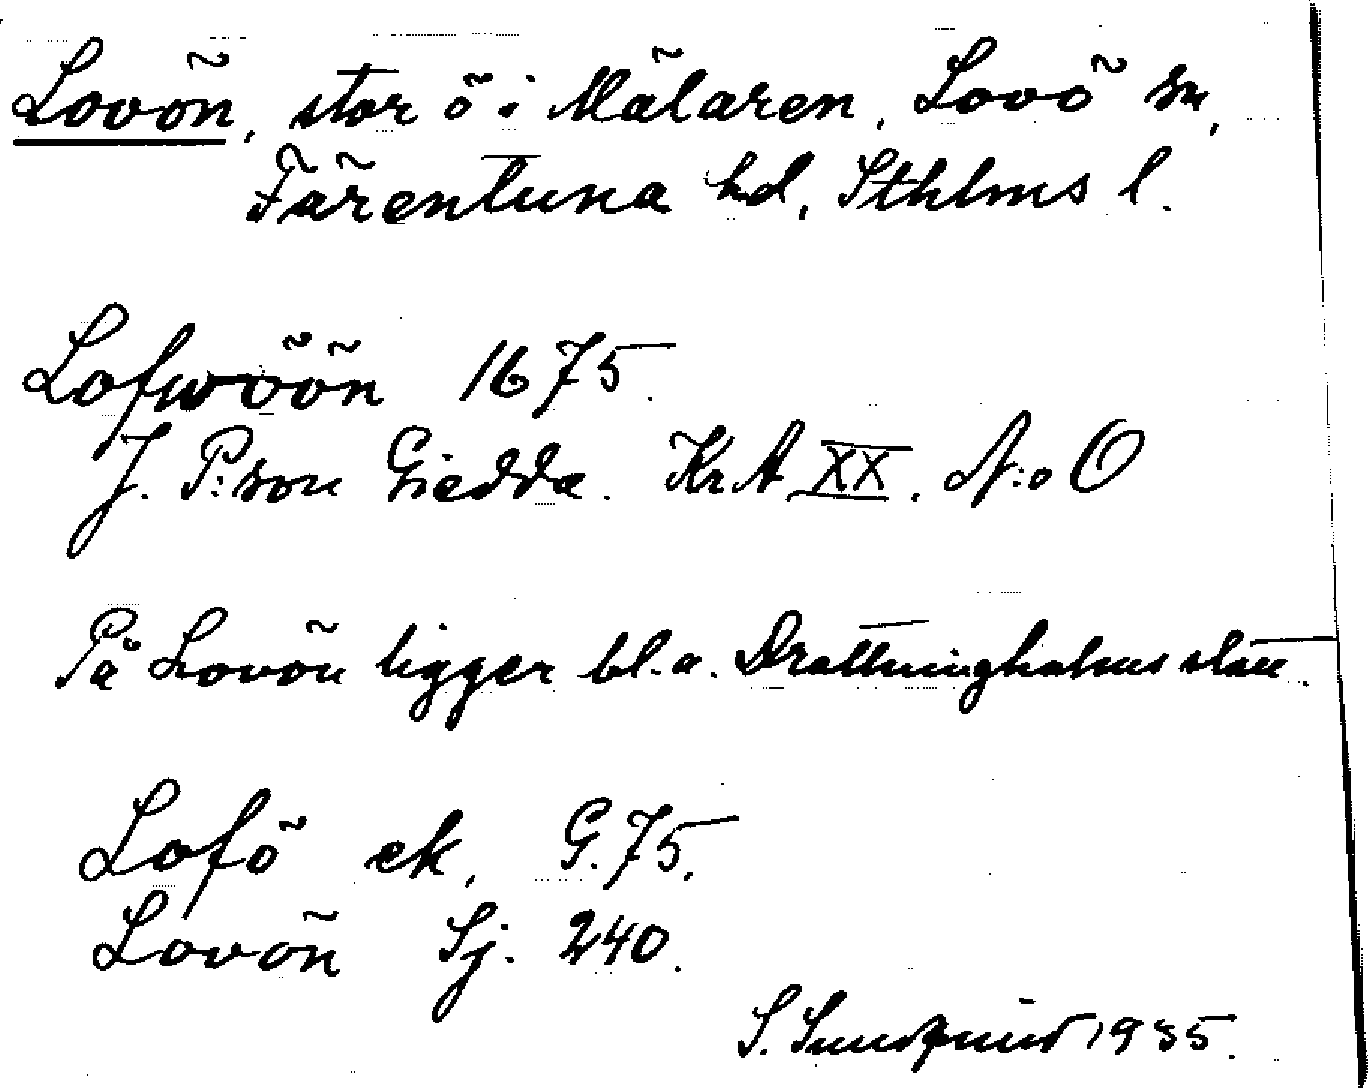 Lovön, stor ö i Mälaren, Lovö sn,
Färentuna hd, Sthlms l.
Lofwöön 1675.
J. P:son Giedda. KrA XX. N:o O
På Lovön ligger bl.a. Drottningholms slott.
Lofö ek. G.75.
Lovön Sj. 240.
S. Sundquist 1935.